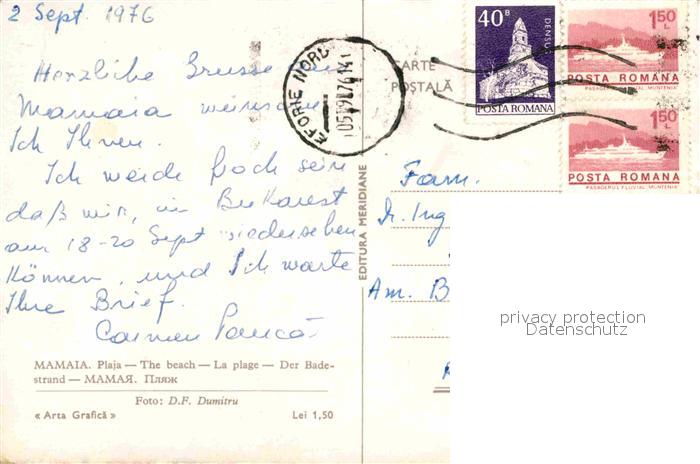 2 Sept. 1976
Herzliche Grusse aus
Mamaia wünsche
Ich Ihnen.
Ich werde froh sein
daß wir, in Bukarest
am 18-20 Sept wiedersehen
können, und Ich warte
Ihre Brief.
Carmen
MAMAIA. Plaja — The beach — La plage — Der Bade-
strand — МАМАЯ. Пляж
Foto: D.F. Dumitru
« Arta Grafică »
Lei 1,50
EDITURA MERIDIANE
CARTE
POȘTALĂ
EFORIE NORD
40 B
DENSUȘ
POSTA ROMANA
1,50 L
POSTA ROMANA
PASAGERUL FLUVIAL "MUNTENIA"
1,50 L
POSTA ROMANA
PASAGERUL FLUVIAL "MUNTENIA"
Fam.
Dr. Ing
Am. B
privacy protection
Datenschutz